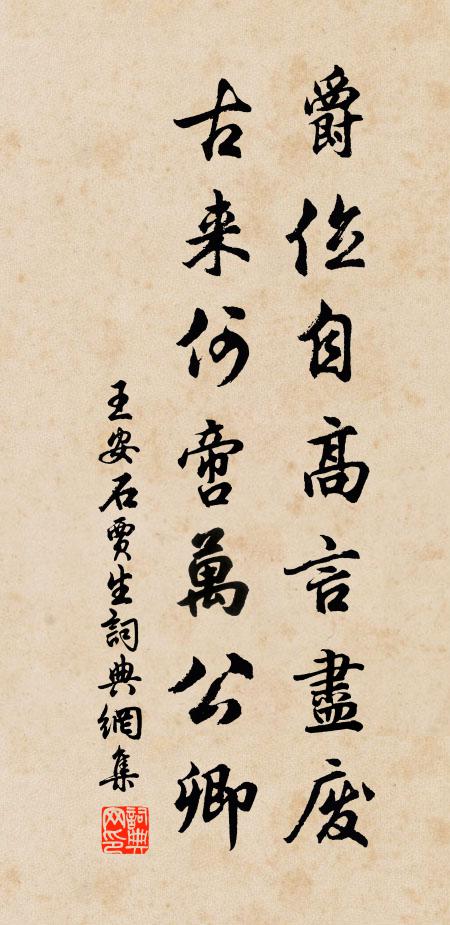 爵位自高言盡廢
古来何啻萬公卿
王安石賈生詞典網集
詞典网印